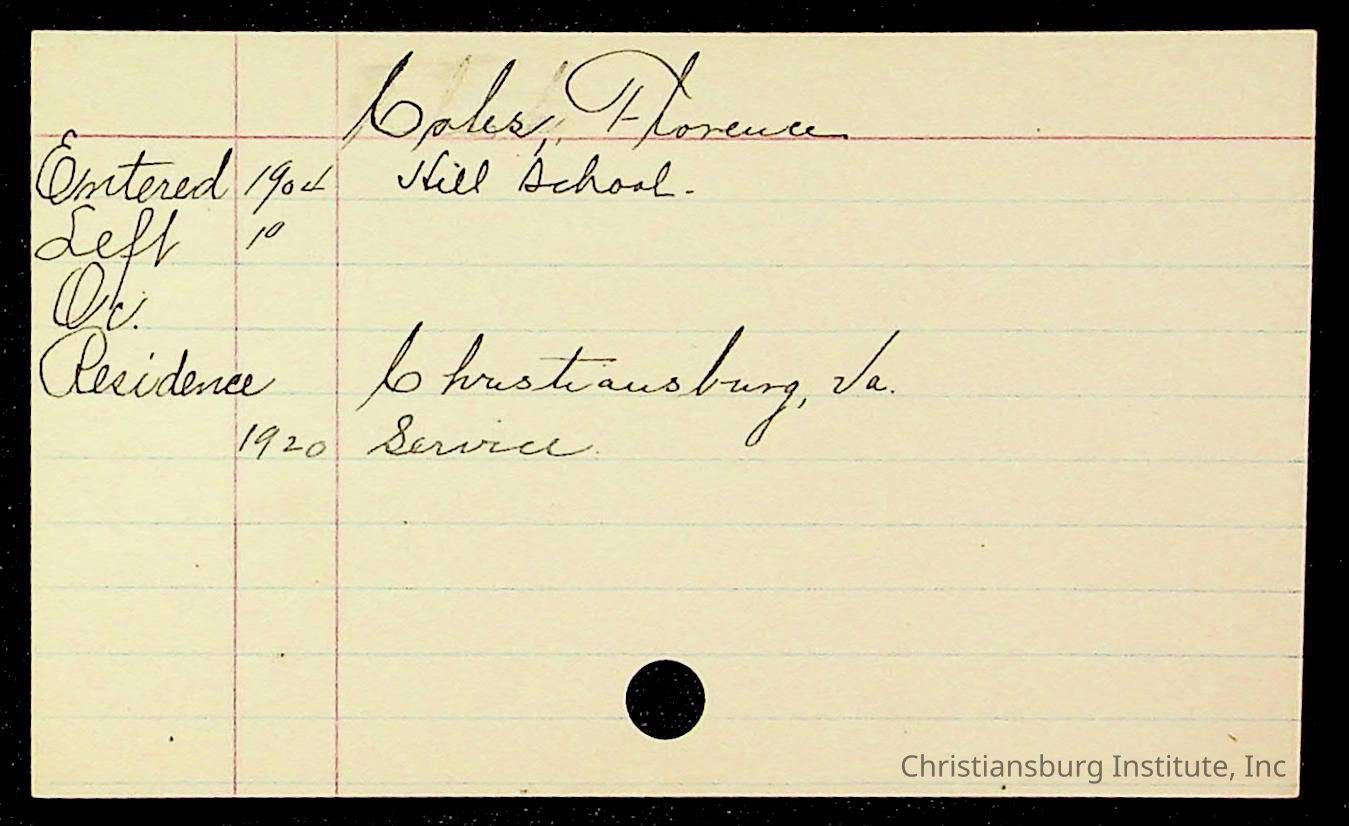 Coles, Florence
Entered 1904 Hill School.
Left "
Oc.
Residence Christiansburg, Va.
1920 Service
Christiansburg Institute, Inc